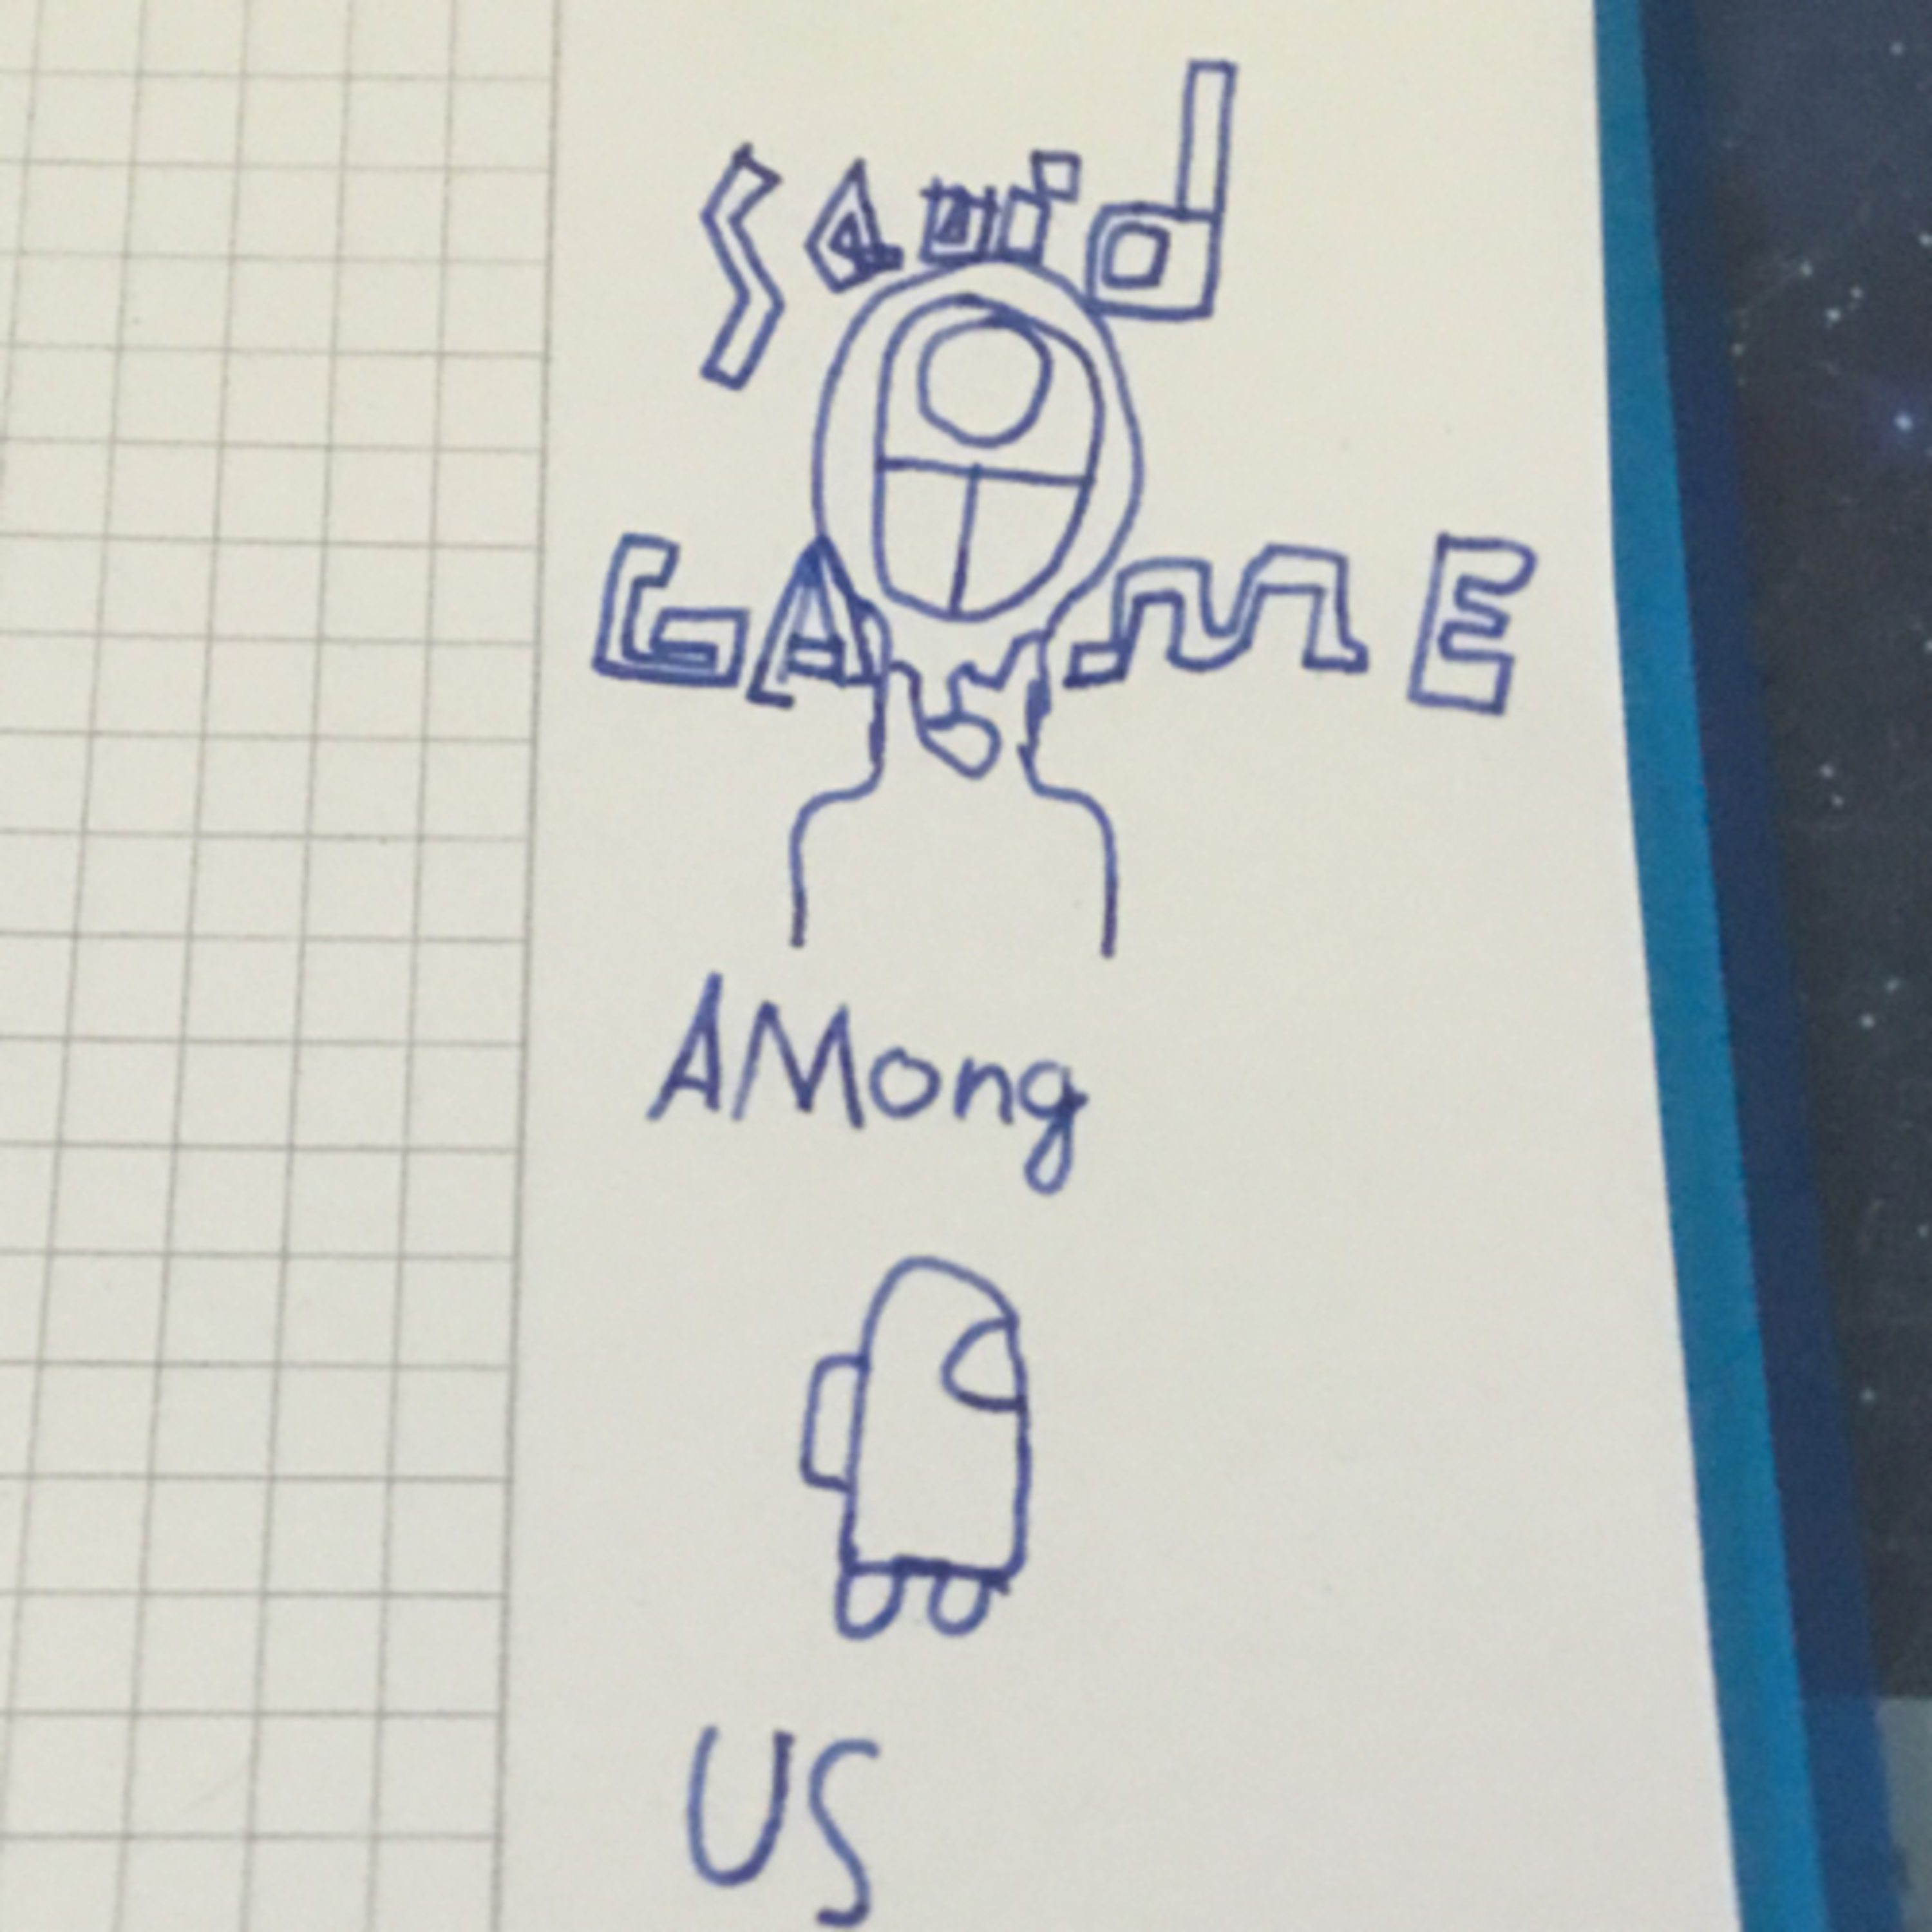 Squid
GAmE
AMong
US